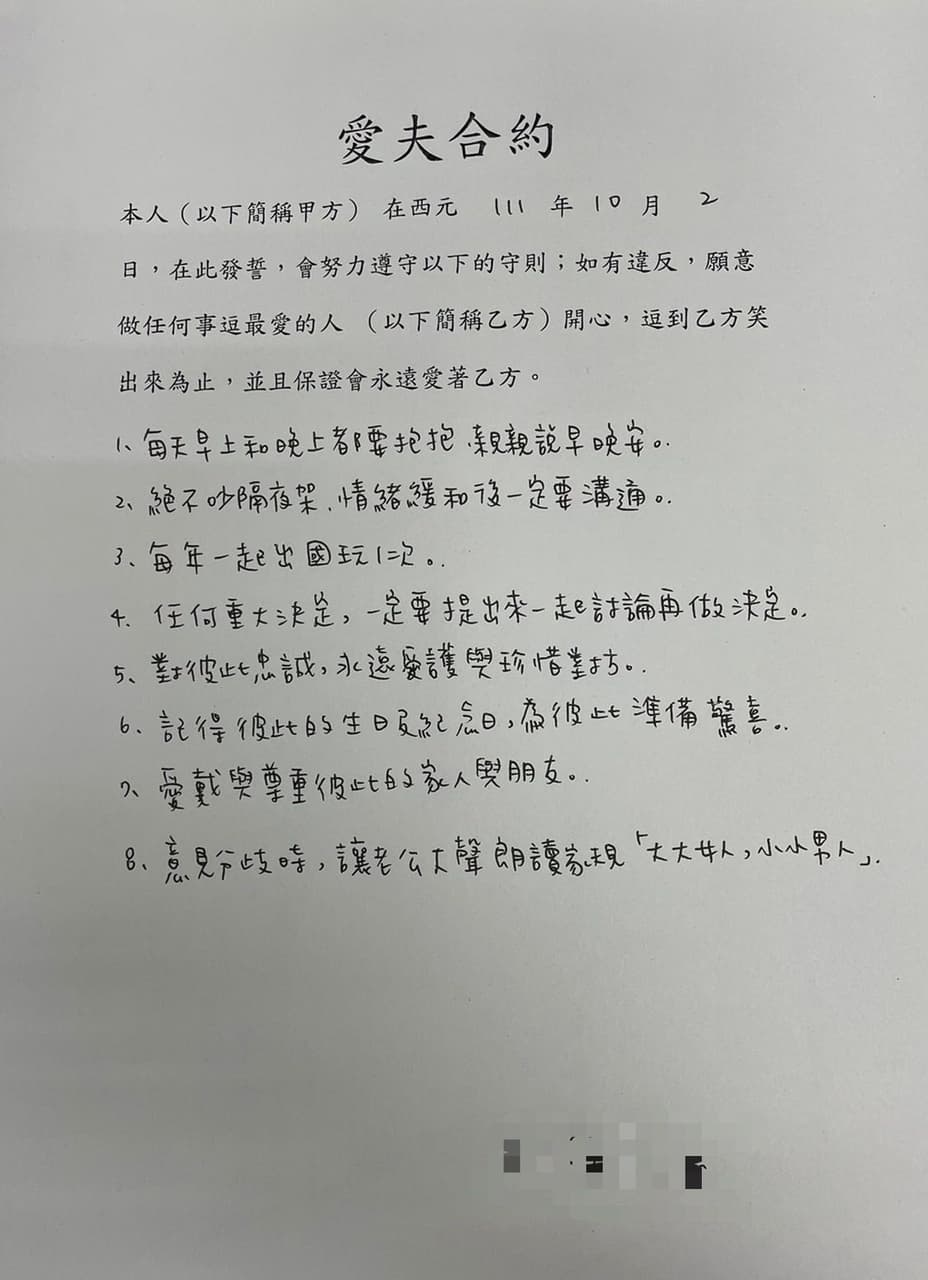 愛夫合約
本人（以下簡稱甲方） 在西元 111 年 10 月 2
日，在此發誓，會努力遵守以下的守則；如有違反，願意
做任何事逗最愛的人 （以下簡稱乙方）開心，逗到乙方笑
出來為止，並且保證會永遠愛著乙方。
1、每天早上和晚上都要抱抱、親親說早晚安。
2、絕不吵隔夜架、情緒緩和後一定要溝通。
3、每年一起出國玩1次。
4、任何重大決定，一定要提出來一起討論再做決定。
5、對彼此忠誠，永遠愛護與珍惜對方。
6、記得彼此的生日及紀念日，為彼此準備驚喜。
7、愛戴與尊重彼此的家人與朋友。
8、意見分歧時，讓老公大聲朗讀家規「大大女人，小小男人」.